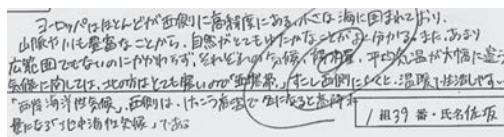 ヨーロッパはほとんどが西側に高緯度にある。小さな海に囲まれており、
山脈や川も豊富なことから、自然がとてもゆたかなことがよく分かる。また、あまり
広範囲でもないのにかかわらず、それぞれの気候、降水量、平均気温が大幅に違う
気候に関しては、北の方はとても寒いので「亜寒帯」、すこし西側にいくと、温暖で生活しやすい
「西岸海洋性気候」、西側は、けっこう高温で
「地中海性気候」である
1組39番・氏名佐店